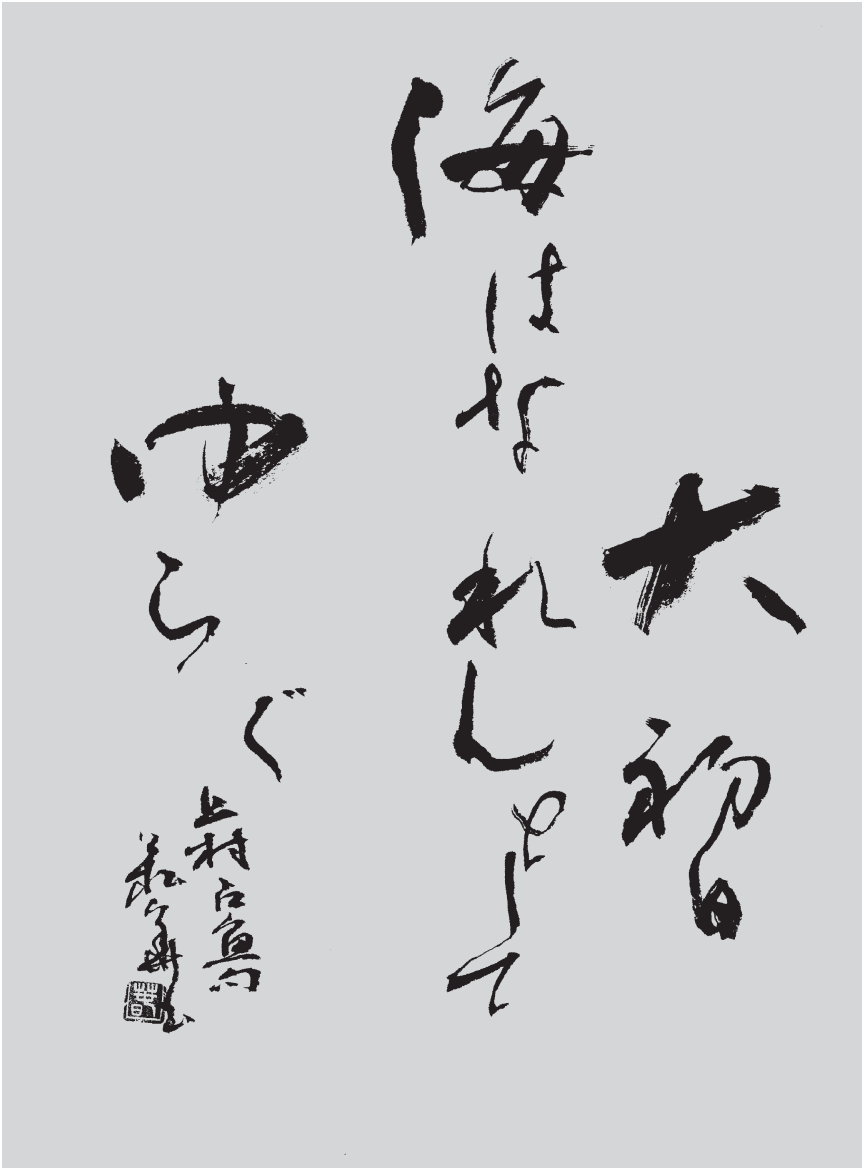 大初日
海はなれんとして
ゆらぐ
上村占魚句